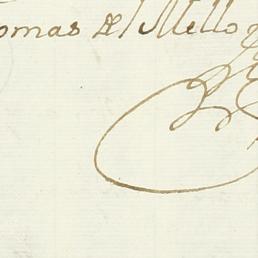 omas del Mello